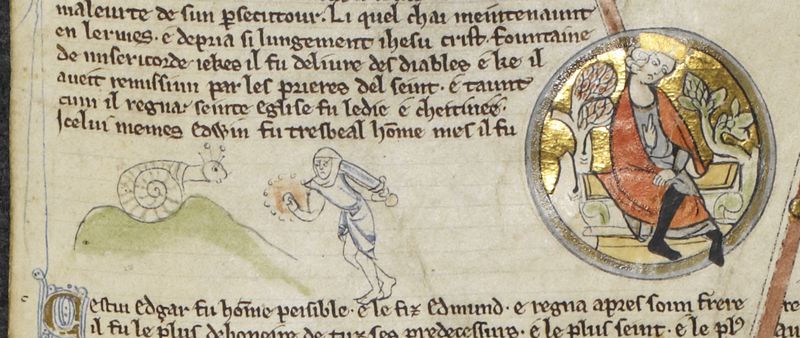 maleurte de sun ꝑsecutour. Li quel chai meintenaunt
en lermes. e depria si lungement ihesu crist. fountaine
de misericorde iekes il fu deliure des diables e ke il
aueit remissiun par les prieres del seint. e taunt
cum il regna seinte eglise fu ledie e
Icelui memes edwin fu tresbeal hõme mes il fu
Cestui edgar fu hõme peisible. e le fiz edmund. e regna apres soun frere
il fu le plus debonoire de tuz ses predecessurs. e le plus seint. e le plꝰ